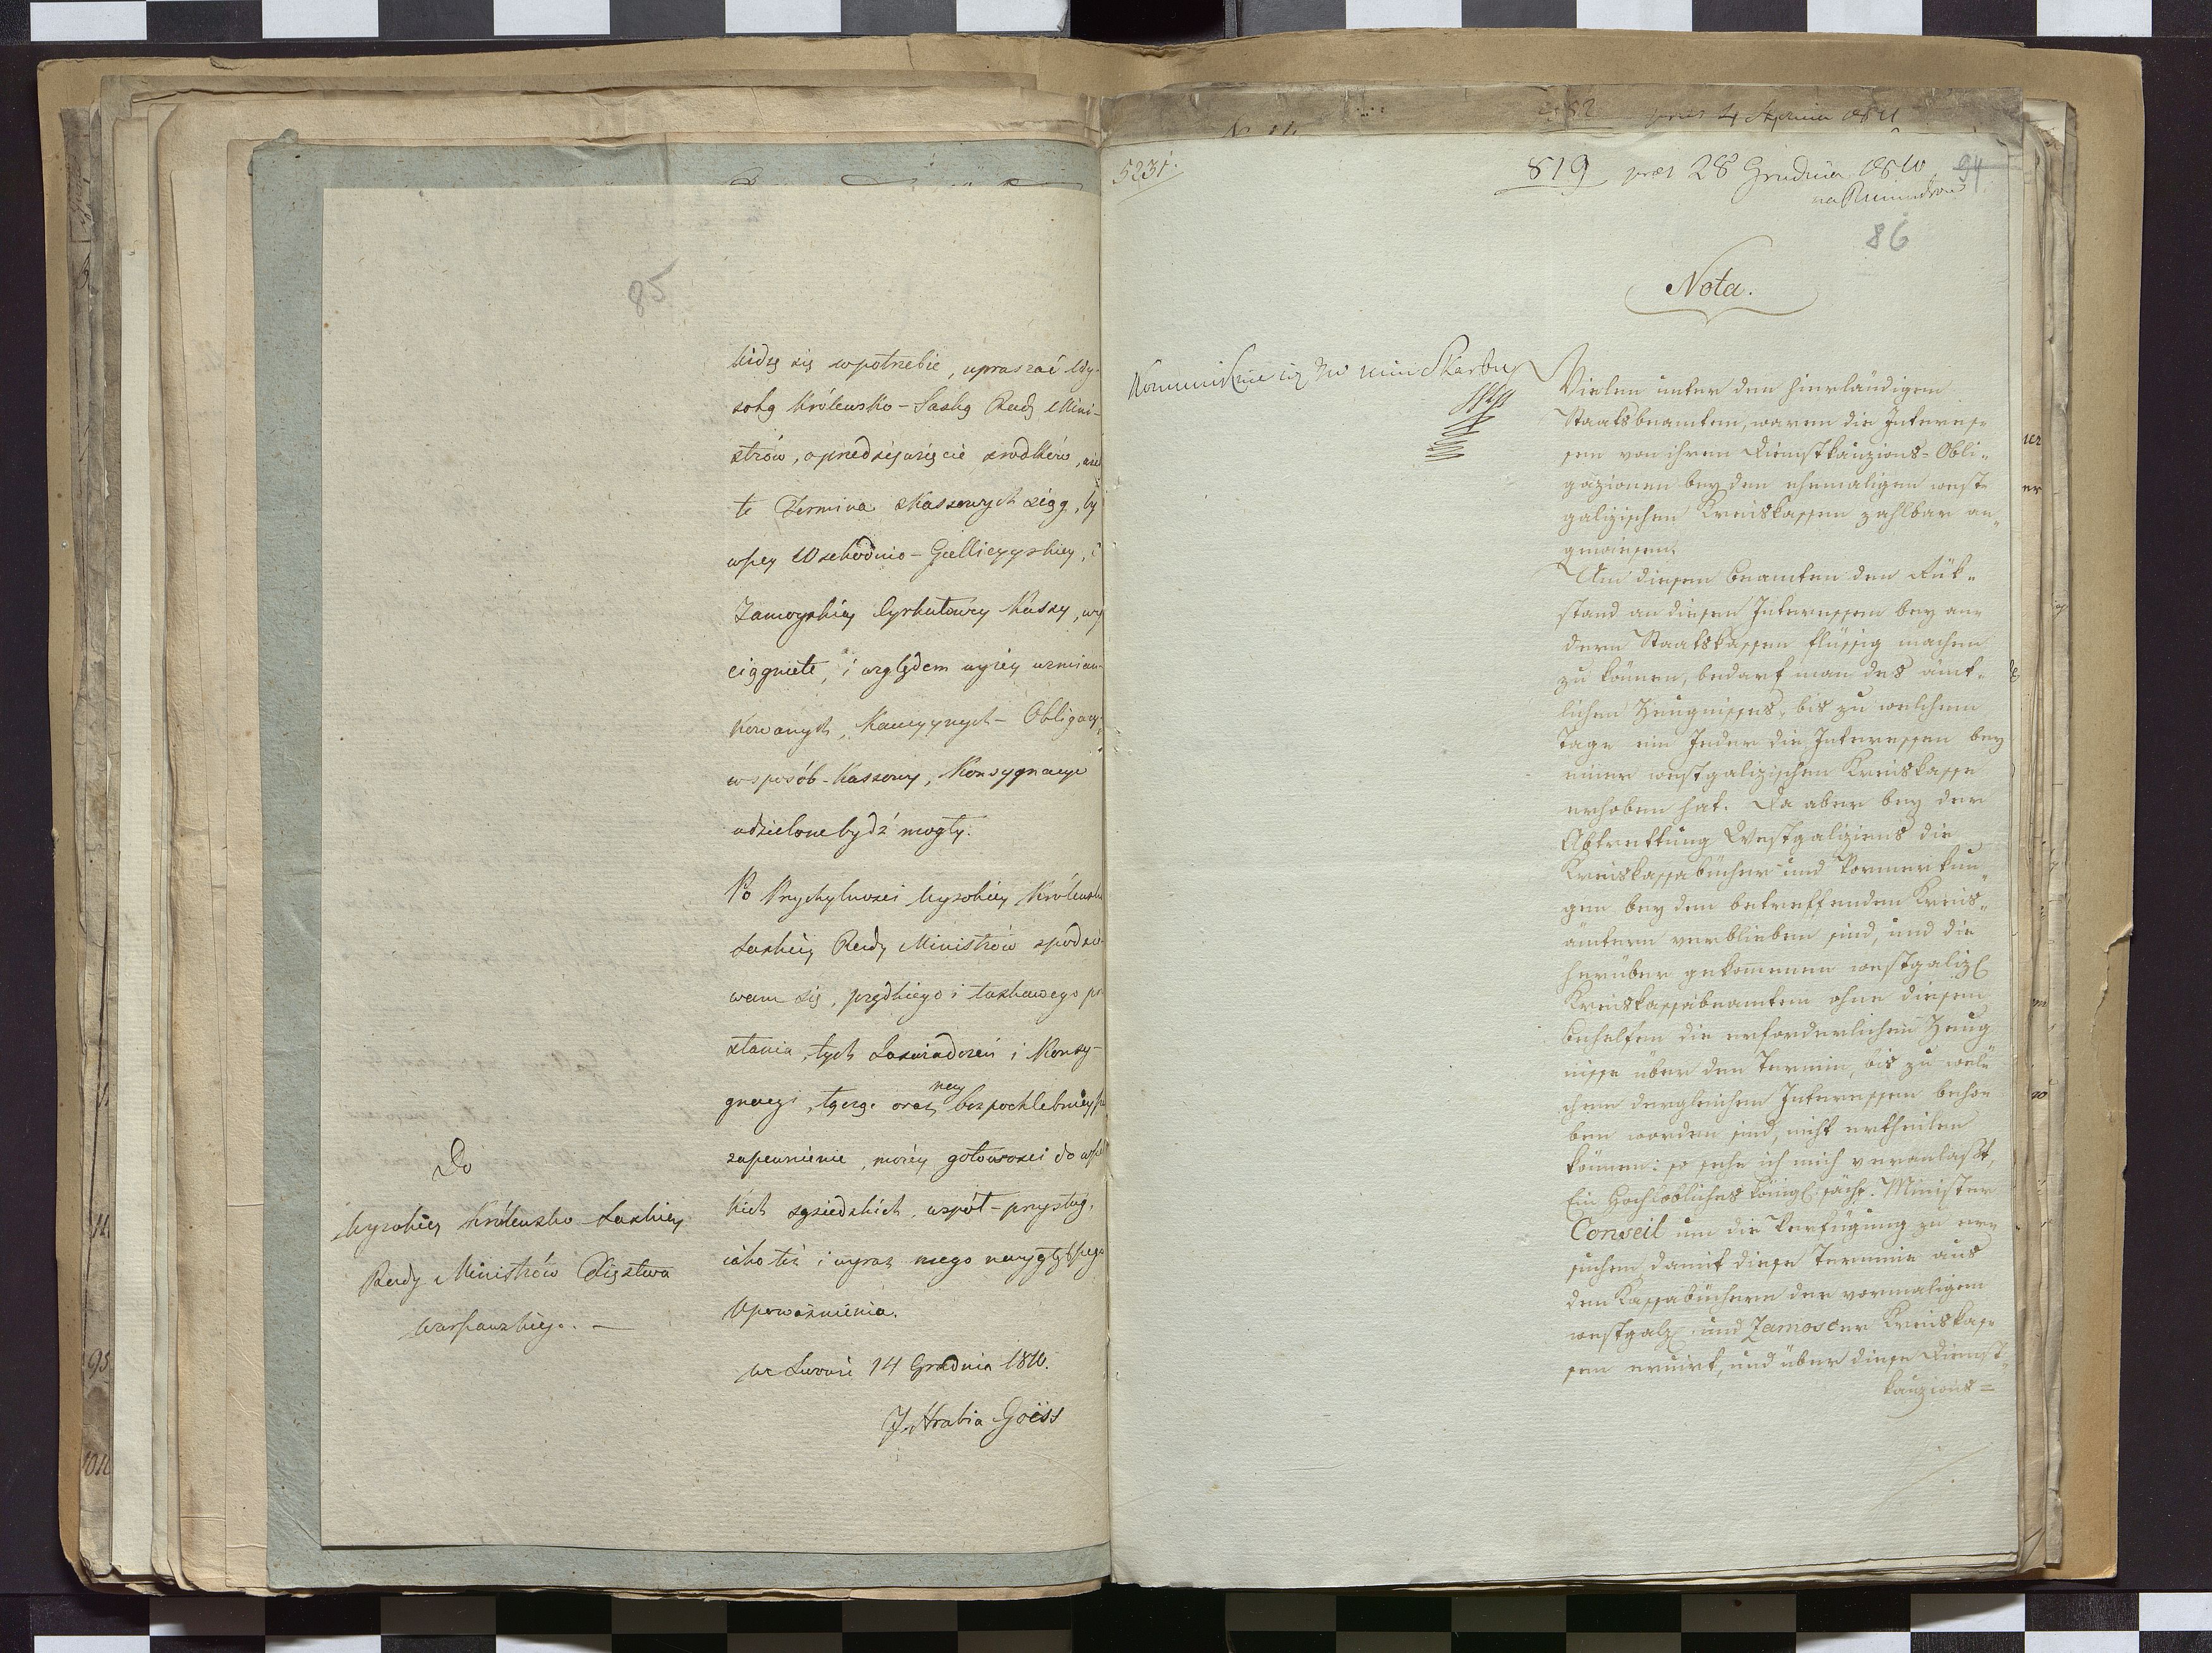 85
widzę się w potrzebie, upraszać Wy-
soką Królewsko-Saską Radę Mini-
strów, o przedsięwzięcie srodków,
te Termina z Kassowych xiąg, by
wszey Wschodnio-Gallicyyskiey, i
Zamoyskiey Cyrkułowey Kassy, wy
ciągnięte, i względem wyżey wzmian-
kowanych, Kaucyynych-Obligacyi
w sposób-Kassowy, Konsygnacye
udzielone bydź mogły.
Po Przychylności Wysokiey Królewsko
Saskiey Rady Ministrów spodzie-
wam się, prędkiego i łaskawego prze
słania, tych Zaświadczeń i Konsy-
gnacyi, łącząc oraz nay bezpochlebnieysze
zapewnienie, moiey gotowości do wszel
kich sąsiedzkich, współ-przysług,
iako też i wyraz mego naygłębszego
Upoważnienia.
we Lwowie 14 Grudnia 1810.
J. Hrabia Goëss
Do
Wysokiey Królewsko-Saskiey
Rady Ministrów Xięstwa
Warszawskiego. —
5231.
819 præs 28 Grudnia 1810
94
86
Nota.
Kommunikuie się JW Mini Skarbu
Vielen unter den hierländigen
Staatsbeamten, waren die Interes-
sen von ihren Dienstkauzions-Obli-
gazionen bey den ehemaligen west-
galizischen Kreiskassen zahlbar an-
gewiesen.
Um diesen Beamten den Rük-
stand an diesen Interessen bey an-
dern Staatskassen flüssig machen
zu können, bedarf man des ämt-
lichen Zeugnisses, bis zu welchem
Tage ein Jeder die Interessen bey
einer westgalizischen Kreiskasse
erhoben hat. Da aber bey der
Abtrettung Westgaliziens die
Kreiskassabücher und Vormerkun-
gen bey den betreffenden Kreis-
ämtern verblieben sind, und die
herüber gekommenen westgaliz
Kreiskassabeamten ohne diesen
Behelfen die erforderlichen Zeug
nisse über den Termin, bis zu wel-
chem dergleichen Interessen beho-
ben worden sind, nicht ertheilen
können: so sehe ich mich veranlaßt,
Ein Hochlöbliches königl: sächs. Minister
Conseil um die Verfügung zu er-
suchen, damit diese Termine aus
den Kassabüchern der vormaligen
westgalz und Zamoscer Kreiskas-
sen eruirt, und über diese Dienst-
kauzions=